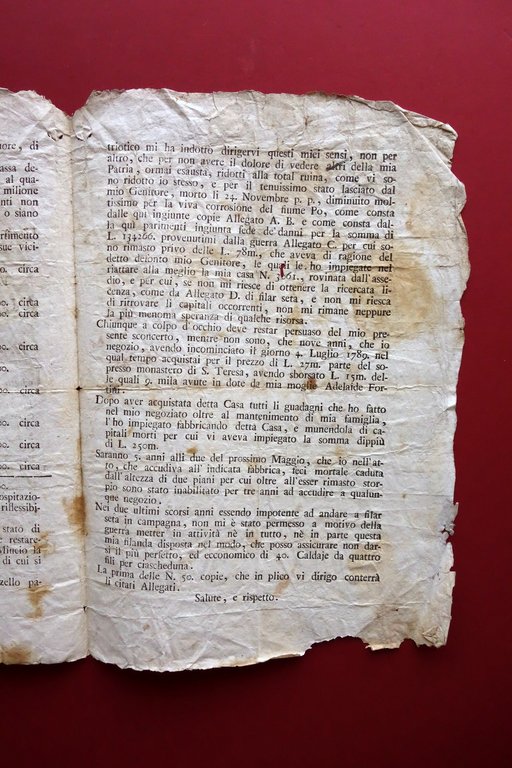 nore, di
assa de-
al qua-
milione
nti non
o siano
sue vici-
o. circa
circa
o. circa
00.
circa
o. circa
o. circa
oo.
ospitazio-
riflessibi-
stato di
e restare-
Mincio la
di cui si
zello pa-
triotico mi ha indotto dirigervi questi miei sensi, non per
altro, che per non avere il dolore di vedere altri della mia
Patria, ormai esausta, ridotti alla total ruina, come vi so-
no ridotto io stesso, e per il tenuissimo stato lasciato dal
mio Genitore, morto li 24. Novembre p. p., diminuito mol-
tissimo per la viva corrosione del fiume Po, come consta
dalle qui ingiunte copie Allegato A. B. e come consta dal-
la qui parimenti ingiunta fede de' danni per la somma di
L. 134266. provenutimi dalla guerra Allegato C. per cui so-
no rimasto privo delle L. 78m., che aveva di ragione del
detto defonto mio Genitore, le quali le ho impiegate nel
riattare alla meglio la mia casa N. rovinata dall'asse-
dio, e per cui, se non mi riesce di ottenere la ricercata li-
cenza, come da Allegato D. di filar seta, e non mi riesca
di ritrovare li capitali occorrenti, non mi rimane neppure
la più menoma speranza di qualche risorsa.
Chiunque a colpo d'occhio deve restar persuaso del mio pre-
sente sconcerto, mentre non sono, che nove anni, che io
negozio, avendo incominciato il giorno 4. Luglio 1789. nel
qual tempo acquistai per il prezzo di L. 27m. parte del so-
presso monastero di S. Teresa, avendo sborsato L. 15m. del-
le quali 9. mila avute in dote da mia moglie Adelaide For-
Dopo aver acquistata detta Casa tutti li guadagni che ho fatto
nel mio negoziato oltre al mantenimento di mia famiglia,
l'ho impiegato fabbricando detta Casa, e munendola di ca-
pitali morti per cui vi aveva impiegato la somma dippiù
di L. 250m.
Saranno 5. anni alli due del prossimo Maggio, che io nell'at-
to, che accudiva all' indicata fabbrica, feci mortale caduta
dall'altezza di due piani per cui oltre all'esser rimasto stor-
pio sono stato inabilitato per tre anni ad accudire a qualun-
que negozio.
Nei due ultimi scorsi anni essendo impotente ad andare a filar
seta in campagna, non mi è stato permesso a morivo della
guerra metter in attività nè in tutto, nè in parte questa
mia filanda disposta nel modo, che posso assicurare non dar-
si il più perfetto, ed economico di 40. Caldaje da quattro
fili per ciascheduna.
La prima delle N. 50. copie, che in plico vi dirigo conterrà
li citati Allegati.
Salute, e rispetto.